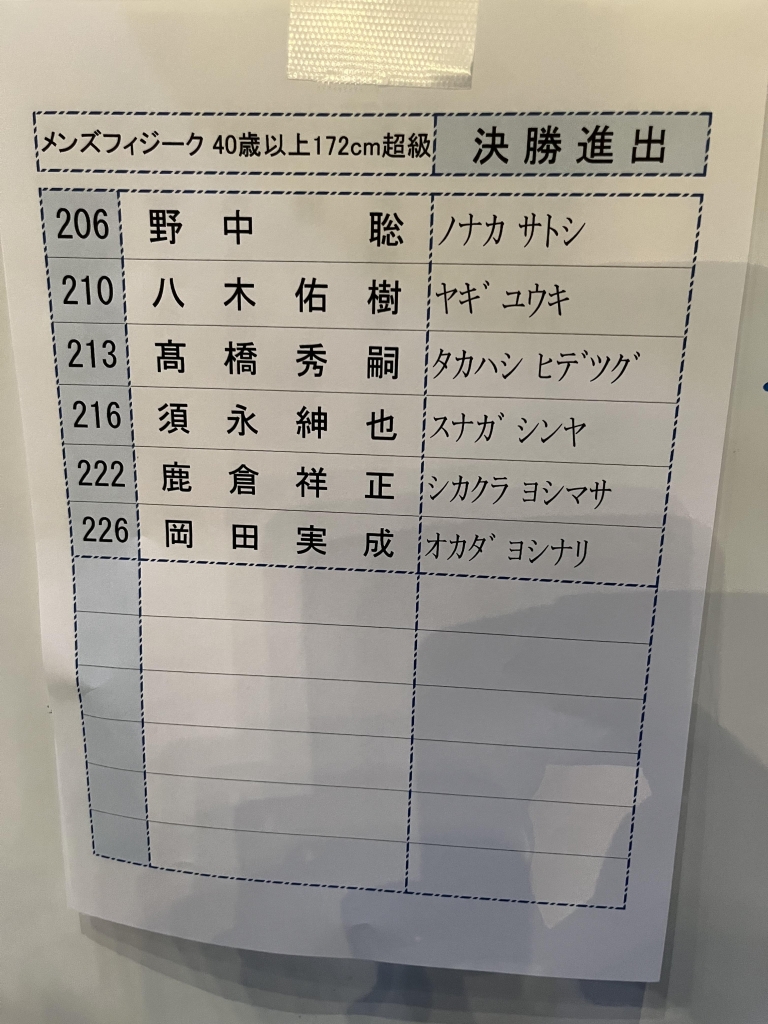 メンズフィジーク 40歳以上172cm超級 決勝進出
206 野中 聡 ノナカ サトシ
210 八木佑樹 ヤギ ユウキ
213 髙橋秀嗣 タカハシ ヒデツグ
216 須永紳也 スナガ シンヤ
222 鹿倉祥正 シカクラ ヨシマサ
226 岡田実成 オカダ ヨシナリ